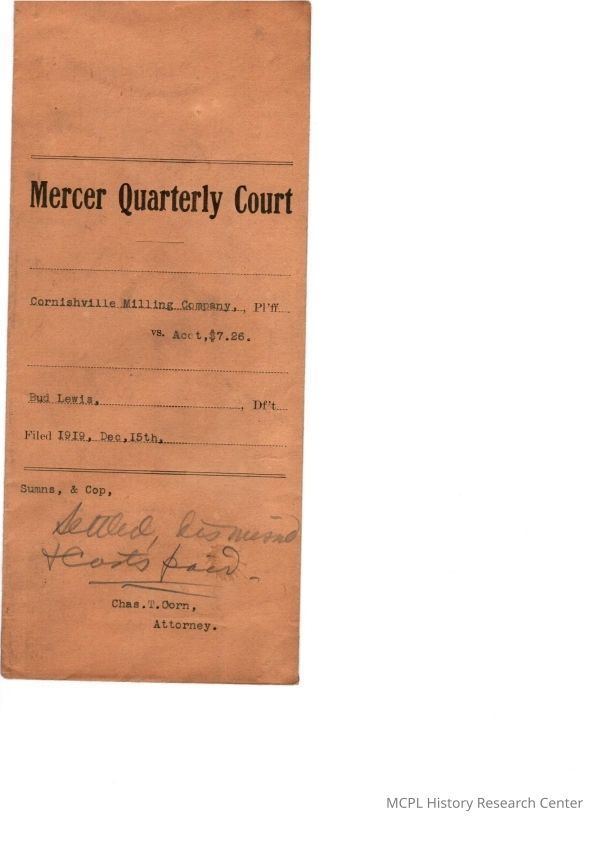 Mercer Quarterly Court
Cornishville Milling Company, , Pl'ff
vs. Acct,$7.26.
Bud Lewis, , Df't
Filed 1919, Dec,15th,
Sumns, & Cop,
Settled, dismissed
& Costs paid.
Chas.T.Corn,
Attorney.
MCPL History Research Center